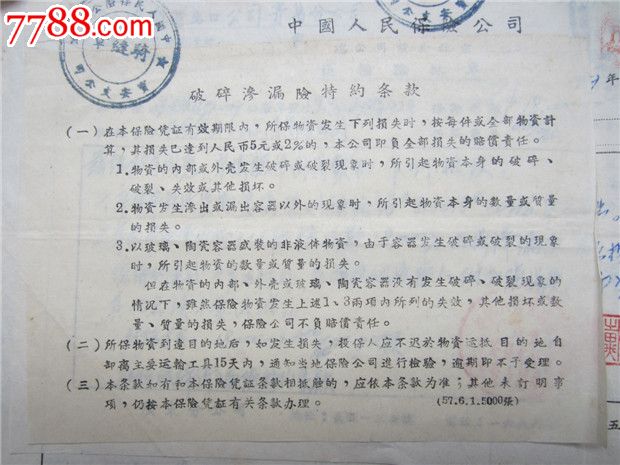 7788.com
中國人民保險公司
騎縫章
寶安支公司
破碎滲漏險特約条款
(一) 在本保險凭証有效期限內，所保物資发生下列損失时，按每件或全部物資計
算，其損失已達到人民币5元或2%的，本公司即負全部損失的賠償責任。
1.物資的內部或外壳发生破碎或破裂現象时，所引起物資本身的破碎、
破裂、失效或其他損坏。
2.物資发生滲出或漏出容器以外的現象时，所引起物資本身的数量或質量
的損失。
3.以玻璃、陶瓷容器或裝的非液体物資，由于容器发生破碎或破裂的現象
时，所引起物資的数量或質量的損失。
但在物資的內部、外壳或玻璃、陶瓷容器沒有发生破碎、破裂現象的
情況下，雖然保險物資发生上述1、3兩項內所列的失效，其他損坏或数
量、質量的損失，保險公司不負賠償責任。
(二) 所保物資到達目的地后，如发生損失，投保人应不迟於物資运抵目的地自
卸离主要运輸工具15天內，通知当地保險公司進行檢驗，逾期即不予受理。
(三) 本条款如有和本保險凭証条款相抵触的，应依本条款为准；其他未訂明事
項，仍按本保險凭証有关条款办理。
(57.6.1.5000張)
年
五